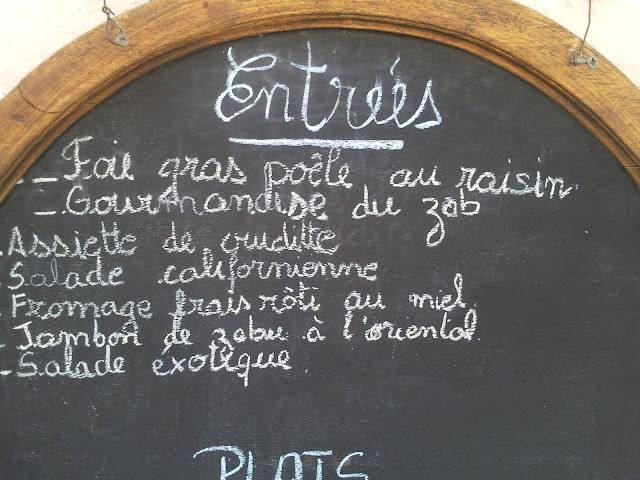 Entrées
_ Foie gras poêlé au raisin.
_ Gourmandise du zob
. Assiette de cruditté
. Salade californienne
. Fromage frais rôti au miel.
_ Jambon de zebu à l'oriental.
_ Salade exotique.
PLATS